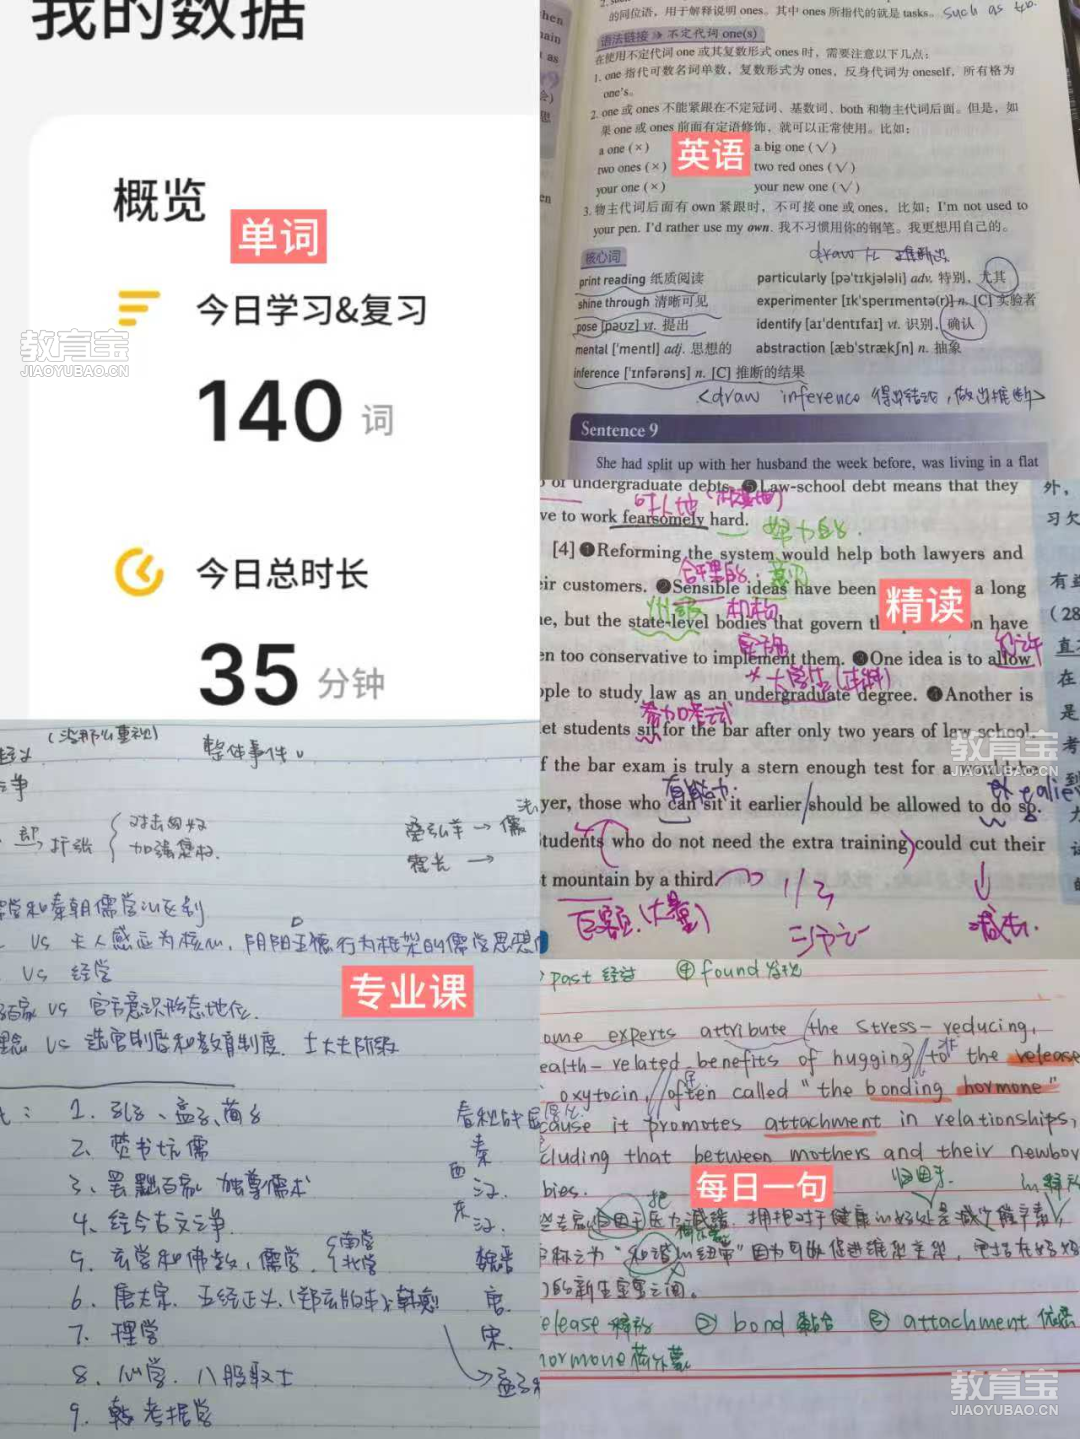 我的数据
概览
单词
今日学习&复习
140 词
今日总时长
35 分钟
教育宝
JIAOYUBAO.CN
的同位语，用于解释说明 ones。其中 ones 所指代的就是 tasks。 such as
语法链接 不定代词 one(s)
在使用不定代词 one 或其复数形式 ones 时，需要注意以下几点：
1. one 指代可数名词单数，复数形式为 ones，反身代词为 oneself，所有格为
one's。
2. one 或 ones 不能紧跟在不定冠词、基数词、both 和物主代词后面。但是，如
果 one 或 ones 前面有定语修饰，就可以正常使用。比如：
a one (×) a big one (√)
英语
two ones (×) two red ones (√)
your one (×) your new one (√)
3. 物主代词后面有 own 紧跟时，不可接 one 或 ones，比如：I'm not used to
your pen. I'd rather use my own. 我不习惯用你的钢笔。我更想用自己的。
核心词
print reading 纸质阅读 particularly [pə'tɪkjələli] adv. 特别，尤其
shine through 清晰可见 experimenter [ɪk'sperɪmentə(r)] n. [C] 实验者
pose [pəʊz] vt. 提出 identify [aɪ'dentɪfaɪ] vt. 识别，确认
mental ['mentl] adj. 思想的 abstraction [æb'strækʃn] n. 抽象
inference ['ɪnfərəns] n. [C] 推断的结果
<draw inference 得出结论，做出推断>
Sentence 9
She had split up with her husband the week before, was living in a flat
of undergraduate debts. ❺Law-school debt means that they
ve to work fearsomely hard.
[4] ❶Reforming the system would help both lawyers and
eir customers. ❷Sensible ideas have been a long
精读
e, but the state-level bodies that govern th on have
州级 机构
en too conservative to implement them. ❸One idea is to allow
允许
ople to study law as an undergraduate degree. ❹Another is
大学生(本科)
参加考试
et students sit for the bar after only two years of law school.
f the bar exam is truly a stern enough test for a would-be
yer, those who can sit it earlier should be allowed to do so.
tudents who do not need the extra training could cut their
t mountain by a third.
巨额(大量) 1/3
三分之一 减去
外，
习欠
有
(28
直
在
是
考
到
教育宝
JIAOYUBAO.CN
(没那么重视) 整体事件
扩张 对击匈奴
加强集权
桑弘羊 → 儒
霍光 →
学和秦朝儒学的区别
vs 天人感应为核心，阴阳五德行为框架的儒学思想
vs 经学
百家 vs 官方意识形态地位.
专业课
理念 vs 选官制度和教育制度. 士大夫阶级
1. 孔子、孟子、荀子 春秋战国
2. 焚书坑儒 秦
3. 罢黜百家 独尊儒术 西汉
4. 经今古文之争. 东汉.
5. 玄学和佛教，儒学. 南学 北学 魏晋
6. 唐太宗. 五经正义. 韩愈 唐.
7. 理学 宋.
8. 心学. 八股取士
9. 考据学
past 经过 ④ found 发现
ome experts attribute (the stress-reducing,
ealth-related benefits of hugging) to the release
oxytocin, often called "the bonding hormone"
cause it promotes attachment in relationships,
cluding that between mothers and their newbor
bies.
每日一句
归因于
的新生宝宝之间。
elease 释放 ② bond 黏合 ③ attachment 依恋
hormone 荷尔蒙
教育宝
JIAOYUBAO.CN